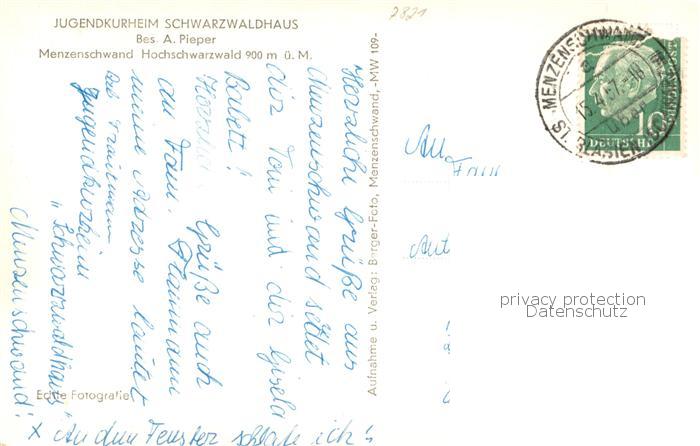 JUGENDKURHEIM SCHWARZWALDHAUS
Bes. A. Pieper
Menzenschwand Hochschwarzwald 900 m ü. M.
2821
Herzliche Grüße aus
Menzenschwand sendet
dir Toni und die Gisela
Babett!
Herzliche Grüße auch
an Fam.
meine Adresse lautet
Jugendkurheim
"Schwarzwaldhaus"
Menzenschwand!
x An dem Fenster schlafe ich!
Echte Fotografie
Aufnahme u. Verlag: Berger-Foto, Menzenschwand, -MW 109-
MENZENSCHWAND
ÜBER
ST. BLASIEN
10
DEUTSCHE
An
Fam
privacy protection
Datenschutz